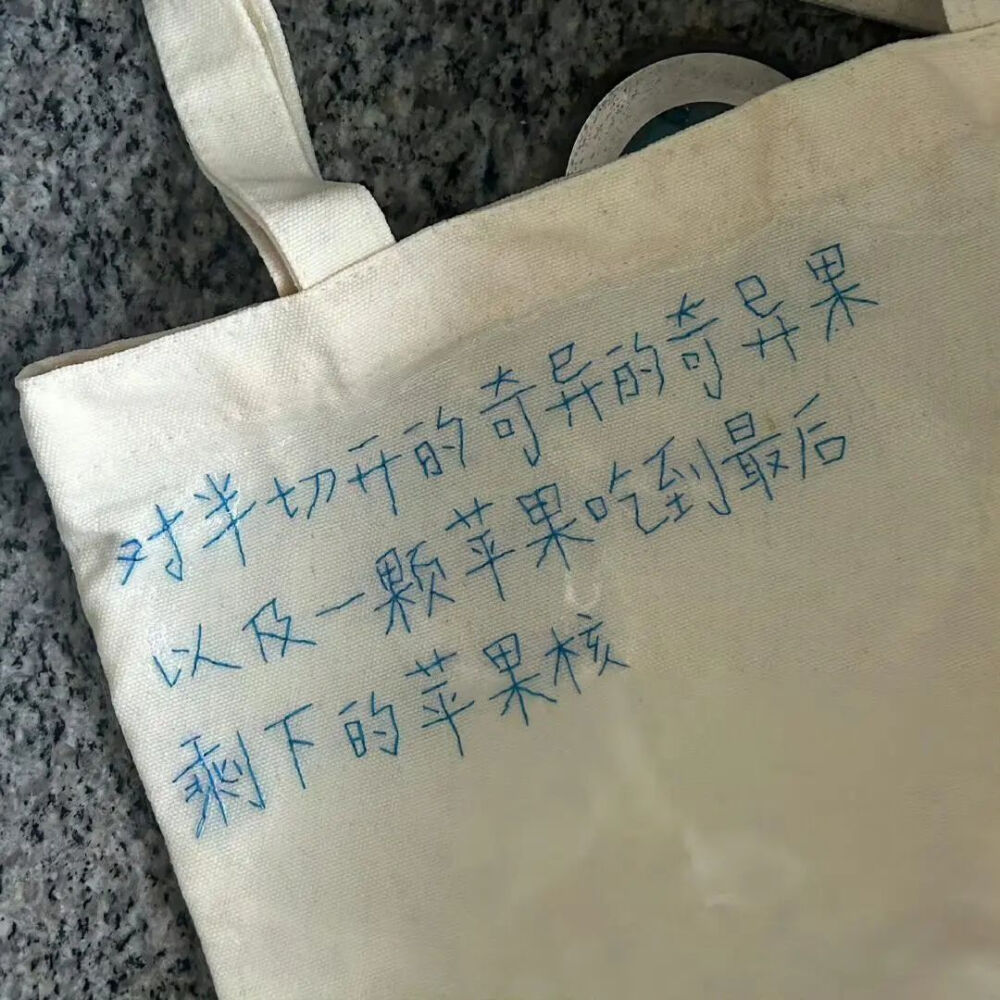 对半切开的奇异的奇异果
以及一颗苹果吃到最后
剩下的苹果核